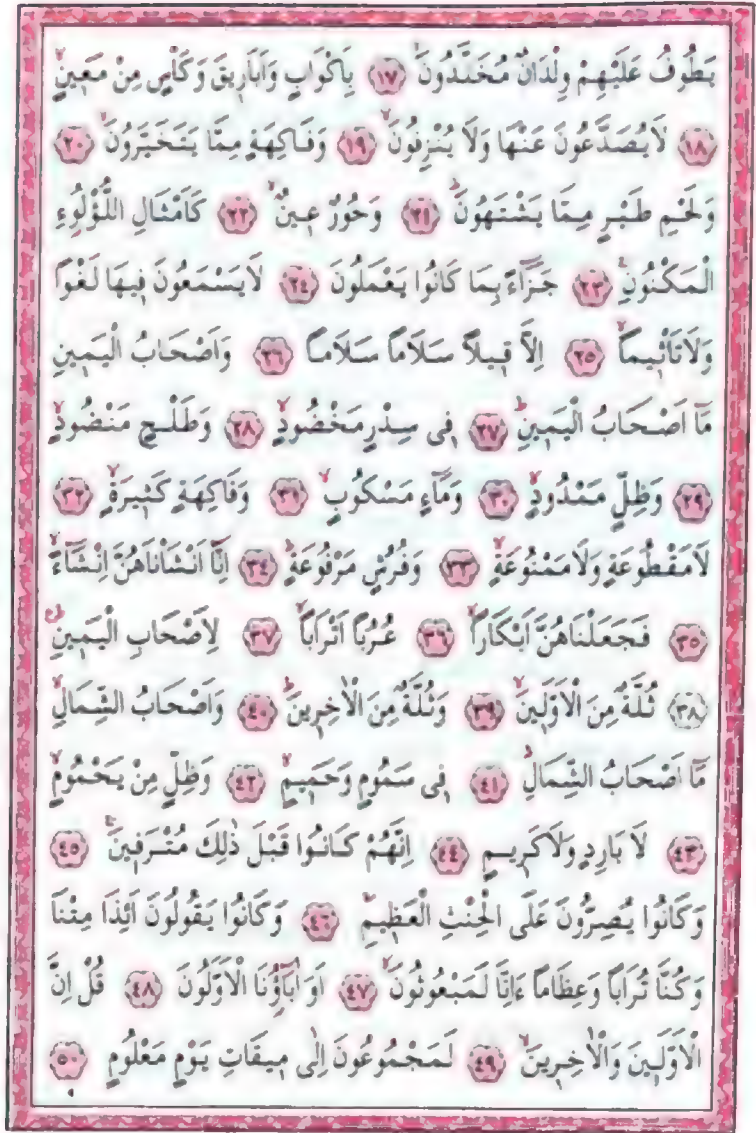 يَطُوفُ عَلَيْهِمْ وِلْدَانٌ مُخَلَّدُونَۙ ﴿١٧﴾ بِاَكْوَابٍ وَاَبَارِيقَ وَكَاْسٍ مِنْ مَعِينٍۙ
﴿١٨﴾ لَا يُصَدَّعُونَ عَنْهَا وَلَا يُنْزِفُونَۙ ﴿١٩﴾ وَفَاكِهَةٍ مِمَّا يَتَخَيَّرُونَۙ ﴿٢٠﴾
وَلَحْمِ طَيْرٍ مِمَّا يَشْتَهُونَۜ ﴿٢١﴾ وَحُورٌ عِينٌۙ ﴿٢٢﴾ كَاَمْثَالِ اللُّؤْلُؤِ۬
الْمَكْنُونِۚ ﴿٢٣﴾ جَزَٓاءً بِمَا كَانُوا يَعْمَلُونَ ﴿٢٤﴾ لَا يَسْمَعُونَ فِيهَا لَغْوًا
وَلَا تَاْثِيمًاۙ ﴿٢٥﴾ اِلَّا قِيلًا سَلَامًا سَلَامًا ﴿٢٦﴾ وَاَصْحَابُ الْيَمِينِ
مَٓا اَصْحَابُ الْيَمِينِۜ ﴿٢٧﴾ فِى سِدْرٍ مَخْضُودٍۙ ﴿٢٨﴾ وَطَلْحٍ مَنْضُودٍۙ
﴿٢٩﴾ وَظِلٍّ مَمْدُودٍۙ ﴿٣٠﴾ وَمَٓاءٍ مَسْكُوبٍۙ ﴿٣١﴾ وَفَاكِهَةٍ كَثِيرَةٍۙ ﴿٣٢﴾
لَا مَقْطُوعَةٍ وَلَا مَمْنُوعَةٍۙ ﴿٣٣﴾ وَفُرُشٍ مَرْفُوعَةٍۜ ﴿٣٤﴾ اِنَّٓا اَنْشَاْنَاهُنَّ اِنْشَٓاءًۙ
﴿٣٥﴾ فَجَعَلْنَاهُنَّ اَبْكَارًاۙ ﴿٣٦﴾ عُرُبًا اَتْرَابًاۙ ﴿٣٧﴾ لِاَصْحَابِ الْيَمِينِۜ
﴿٣٨﴾ ثُلَّةٌ مِنَ الْاَوَّلِينَۙ ﴿٣٩﴾ وَثُلَّةٌ مِنَ الْاٰخِرِينَۜ ﴿٤٠﴾ وَاَصْحَابُ الشِّمَالِۙ
مَٓا اَصْحَابُ الشِّمَالِۜ ﴿٤١﴾ فِى سَمُومٍ وَحَمِيمٍۙ ﴿٤٢﴾ وَظِلٍّ مِنْ يَحْمُومٍۙ
﴿٤٣﴾ لَا بَارِدٍ وَلَا كَرِيمٍ ﴿٤٤﴾ اِنَّهُمْ كَانُوا قَبْلَ ذٰلِكَ مُتْرَفِينَۚ ﴿٤٥﴾
وَكَانُوا يُصِرُّونَ عَلَى الْحِنْثِ الْعَظِيمِۚ ﴿٤٦﴾ وَكَانُوا يَقُولُونَ اَئِذَا مِتْنَا
وَكُنَّا تُرَابًا وَعِظَامًا ءَاِنَّا لَمَبْعُوثُونَۙ ﴿٤٧﴾ اَوَاٰبَٓاؤُ۬نَا الْاَوَّلُونَ ﴿٤٨﴾ قُلْ اِنَّ
الْاَوَّلِينَ وَالْاٰخِرِينَۙ ﴿٤٩﴾ لَمَجْمُوعُونَ اِلٰى مِيقَاتِ يَوْمٍ مَعْلُومٍ ﴿٥٠﴾